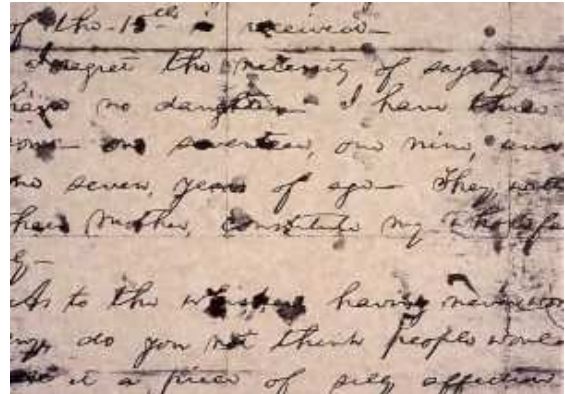 of the 15th is received—
I regret the necessity of saying I
have no daughters— I have three
sons— one seventeen, one nine, and
one seven, years of age— They, with
their mother, constitute my whole fa
ly—
As to the whiskers, having never worn
any, do you not think people would
it a piece of silly affection